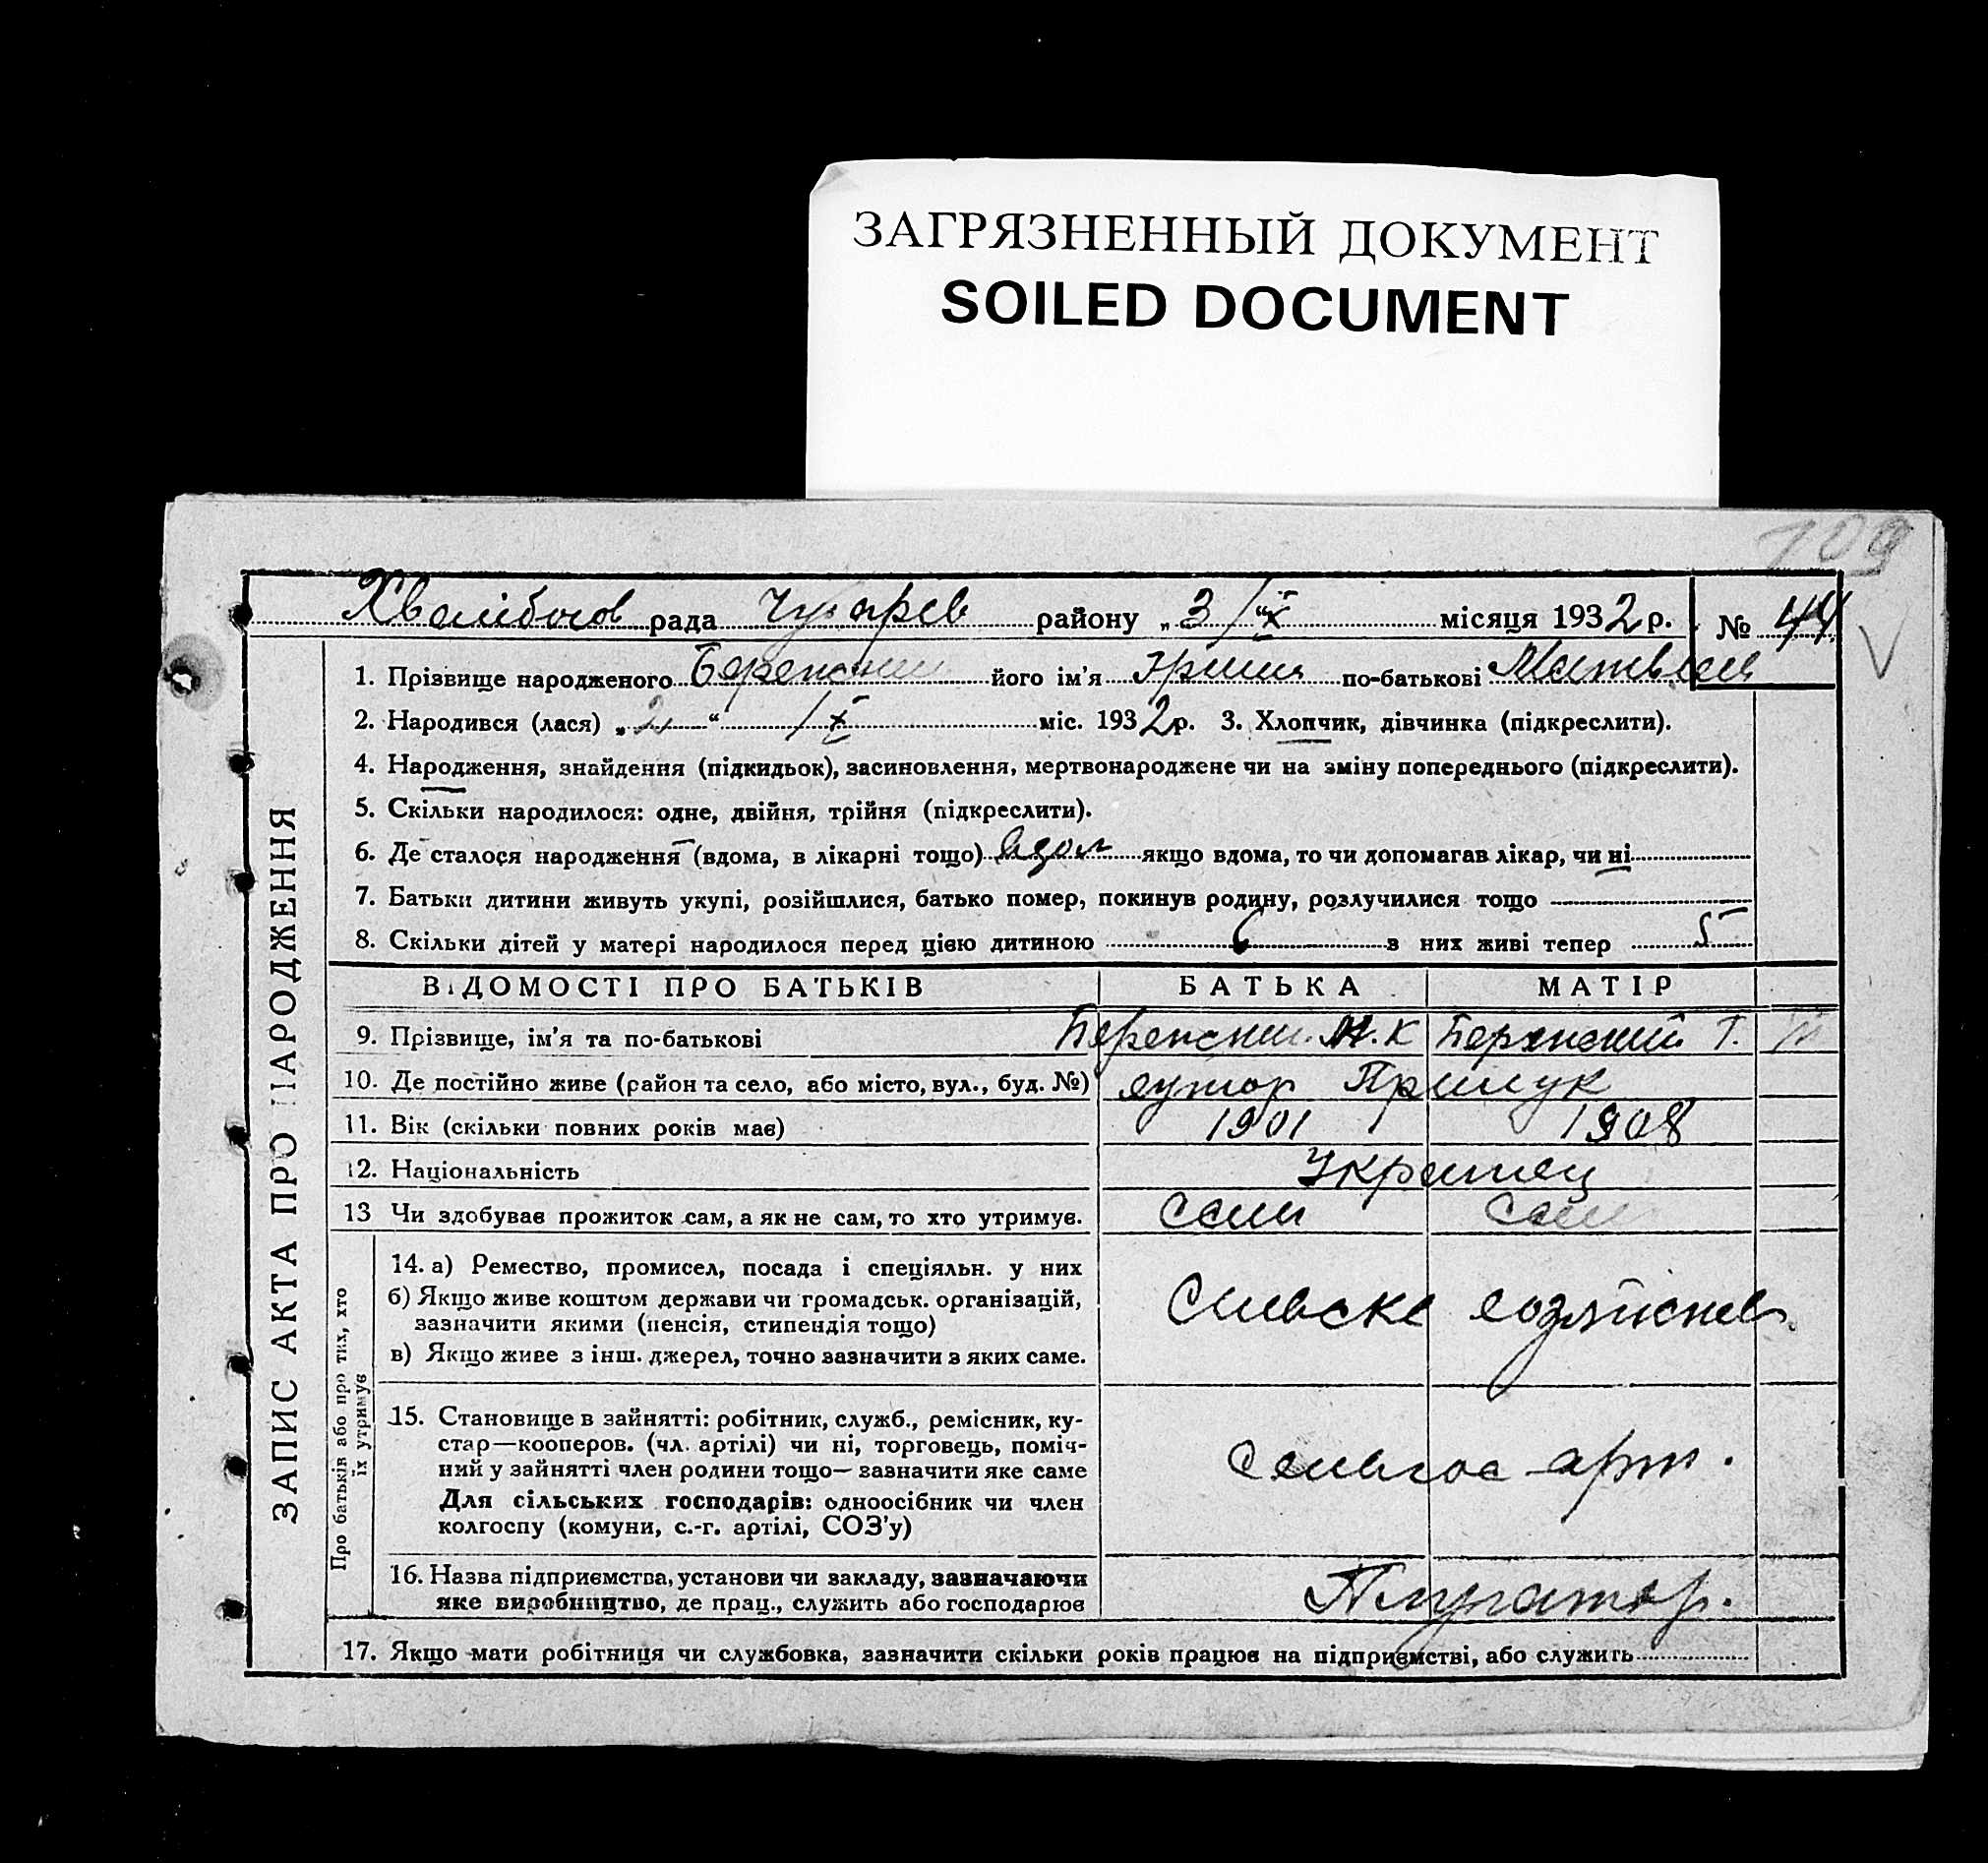 ЗАГРЯЗНЕННЫЙ ДОКУМЕНТ
SOILED DOCUMENT
109
рада района району „3/IX“ місяця 1932 р. № 44
1. Прізвище народженого його ім'я по-батькові
2. Народився (лася) „2“ /X міс. 1932 р. 3. Хлопчик, дівчинка (підкреслити).
4. Народження, знайдення (підкидьок), засиновлення, мертвонароджене чи на зміну попереднього (підкреслити).
5. Скільки народилося: одне, двійня, трійня (підкреслити).
6. Де сталося народження (вдома, в лікарні тощо) вдом якщо вдома, то чи допомагав лікар, чи ні
7. Батьки дитини живуть укупі, розійшлися, батько помер, покинув родину, розлучилися тощо
8. Скільки дітей у матері народилося перед цією дитиною 6 з них живі тепер 5
ЗАПИС АКТА ПРО НАРОДЖЕННЯ
ВІДОМОСТІ ПРО БАТЬКІВ БАТЬКА МАТІР
9. Прізвище, ім'я та по-батькові
10. Де постійно живе (район та село, або місто, вул., буд. №) хутор
11. Вік (скільки повних років має) 1901 1908
12. Національність
13 Чи здобуває прожиток сам, а як не сам, то хто утримує. сам сам
Про батьків або про тих, хто їх утримує
14. а) Ремество, промисел, посада і спеціяльн. у них
б) Якщо живе коштом держави чи громадськ. організацій,
зазначити якими (пенсія, стипендія тощо)
в) Якщо живе з інш. джерел, точно зазначити з яких саме.
15. Становище в зайнятті: робітник, служб., ремісник, ку-
стар—кооперов. (чл. артілі) чи ні, торговець, поміч-
ний у зайнятті член родини тощо— зазначити яке саме
Для сільських господарів: одноосібник чи член
колгоспу (комуни, с.-г. артілі, СОЗ'у)
арт.
16. Назва підприємства, установи чи закладу, зазначаючи
яке виробництво, де прац., служить або господарює
17. Якщо мати робітниця чи службовка, зазначити скільки років працює на підприємстві, або служить